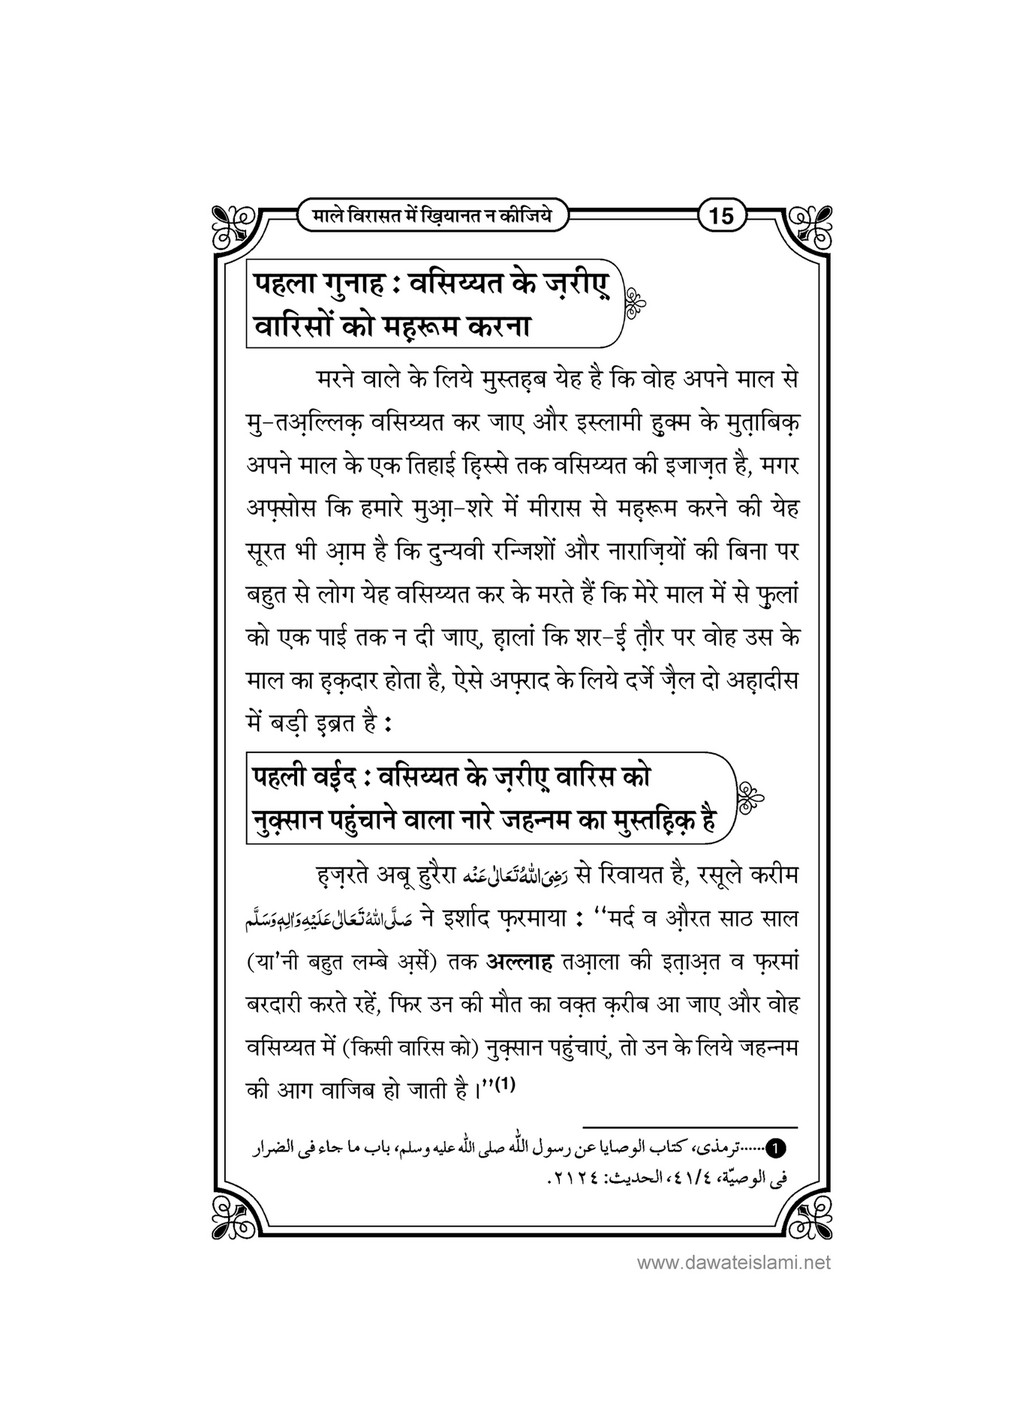 माले विरासत में ख़ियानत न कीजिये
15
पहला गुनाह : वसिय्यत के ज़रीए़
वारिसों को मह़रूम करना
मरने वाले के लिये मुस्तह़ब येह है कि वोह अपने माल से
मु-तअ़ल्लिक़ वसिय्यत कर जाए और इस्लामी हु़क्म के मुत़ाबिक़
अपने माल के एक तिहाई हि़स्से तक वसिय्यत की इजाज़त है, मगर
अफ़्सोस कि हमारे मुआ़-शरे में मीरास से मह़रूम करने की येह
सूरत भी आ़म है कि दुन्यवी रन्जिशों और नाराज़ियों की बिना पर
बहुत से लोग येह वसिय्यत कर के मरते हैं कि मेरे माल में से फु़लां
को एक पाई तक न दी जाए, ह़ालां कि शर-ई त़ौर पर वोह उस के
माल का ह़क़दार होता है, ऐसे अफ़्राद के लिये दर्जे ज़ैल दो अह़ादीस
में बड़ी इ़ब्रत है :
पहली वई़द : वसिय्यत के ज़रीए़ वारिस को
नुक़्सान पहुंचाने वाला नारे जहन्नम का मुस्तह़िक़ है
ह़ज़रते अबू हुरैरा رَضِیَ اللّٰهُ تَعَالٰی عَنْه से रिवायत है, रसूले करीम
صَلَّی اللّٰهُ تَعَالٰی عَلَیْهِ وَاٰلِهٖ وَسَلَّم ने इर्शाद फ़रमाया : ‘‘मर्द व औ़रत साठ साल
(या’नी बहुत लम्बे अ़र्से) तक अल्लाह तआ़ला की इत़ाअ़त व फ़रमां
बरदारी करते रहें, फिर उन की मौत का वक़्त क़रीब आ जाए और वोह
वसिय्यत में (किसी वारिस को) नुक़्सान पहुंचाएं, तो उन के लिये जहन्नम
की आग वाजिब हो जाती है ।’’(1)
❶......ترمذی، کتاب الوصایا عن رسول اللّٰه صلی اللّٰه علیه وسلم، باب ما جاء فی الضرار
فی الوصیّة، ٤/٤١، الحدیث: ٢١٢٤.
www.dawateislami.net